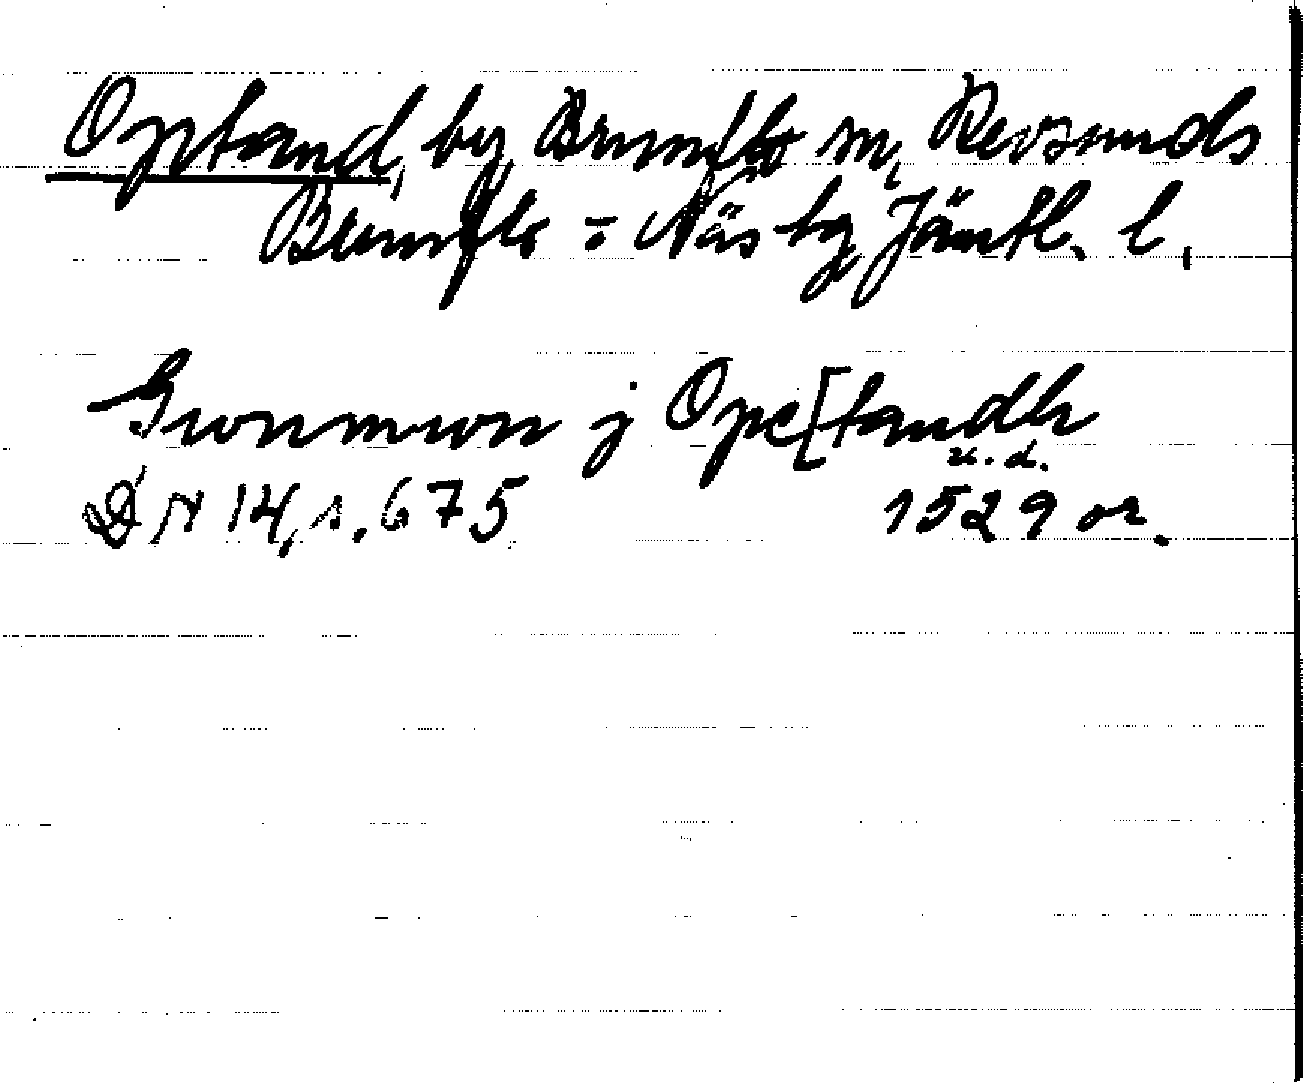 Optand, by, Brunflo sn, Revsunds
Brunflo o Näs tg, Jämtl. l.
Gwnmwn j Ope[tandh
u.d.
DN 14, s. 675 1529 or.